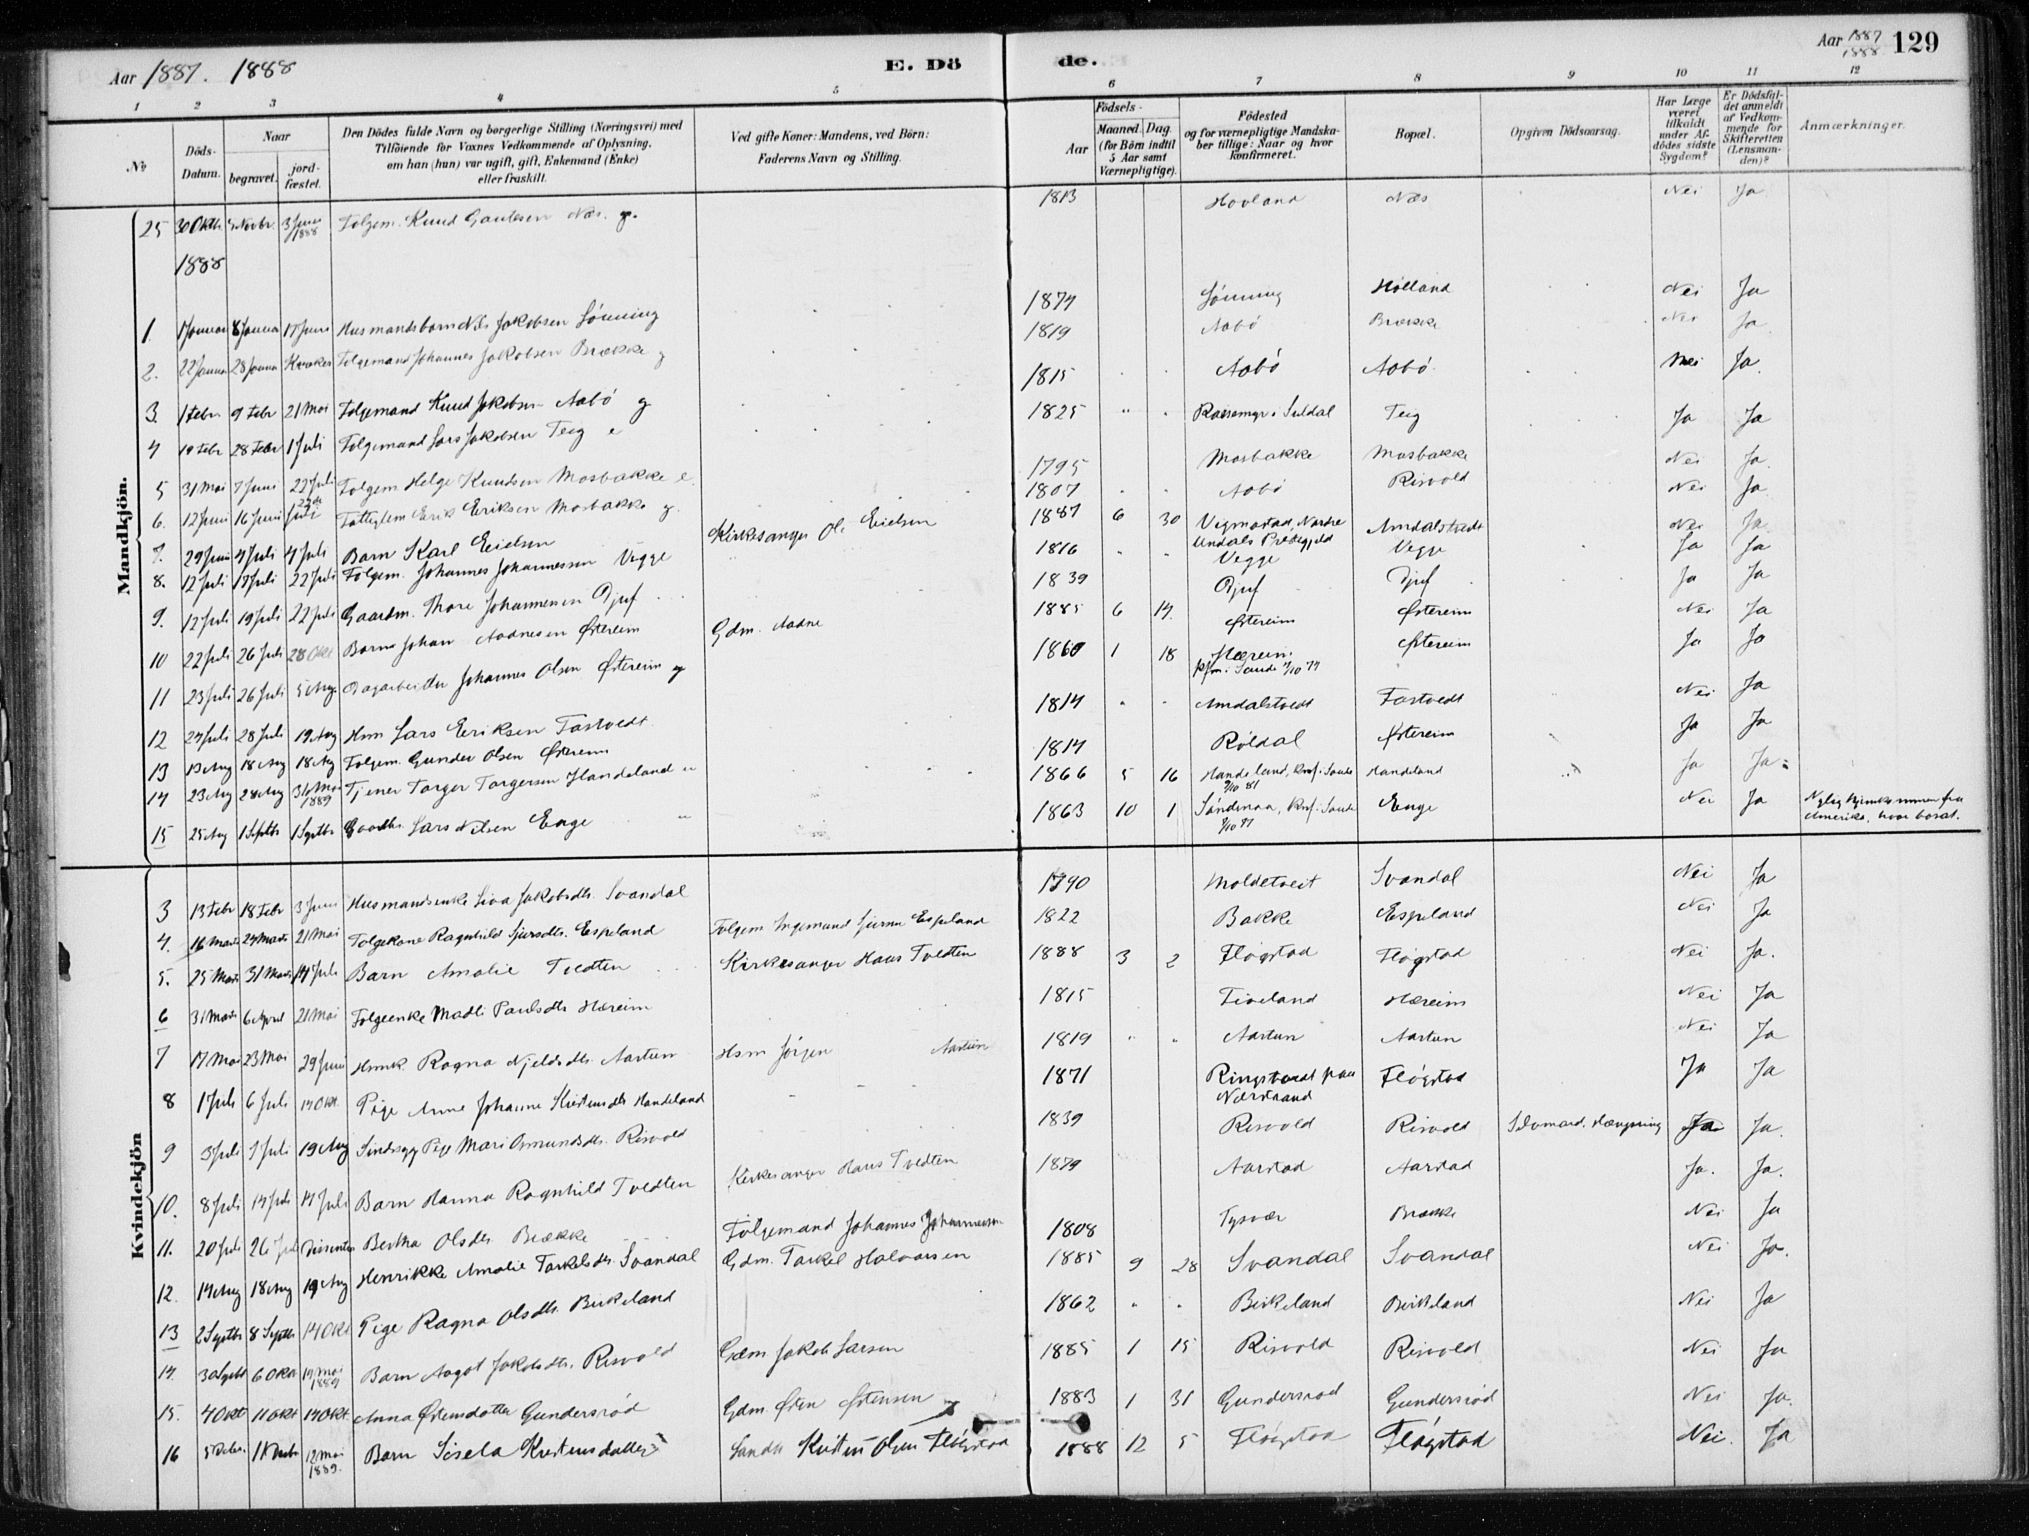 Aar 1887. 1888
E. Dö
de.
Aar 1887 1888 129
1 2 3 4 5 6 7 8 9 10 11 12
No
Döds-Datum.
Naar
begravet.
jord-fæstet.
Den Dödes fulde Navn og borgerlige Stilling (Næringsvei) med
Tilföiende for Voxnes Vedkommende af Oplysning,
om han (hun) var ugift, gift, Enkemand (Enke)
eller fraskilt.
Ved gifte Koner: Mandens, ved Börn:
Faderens Navn og Stilling.
Födsels-
Aar
Maaned. Dag.
(for Börn indtil
5 Aar samt
Værnepligtige).
Födested
og for værnepligtige Mandska-
ber tillige: Naar og hvor
konfirmeret.
Bopæl.
Opgiven Dödsaarsag.
Har Læge
været
tilkaldt
under Af-
dödes sidste
Sygdom?
Er Dödsfal-
det anmeldt
af Vedkom-
mende for
Skifteretten
(Lensman-
den)?
Anmærkninger.
Mandkjön.
25 30 Oktb. 5 Novbr. 3 Juni 1888 Folgem. Knud Gautesen Næs. g. 1813 Hovland Næs Nei Ja
1888
1. 1 Januar 8 Januar 17 Juni Husmandsbarn Nils Jakobsen Lönning 1874 Lönning Hölland Nei Ja
2. 22 Januar 28 Januar Kvæker Folgemand Johannes Jakobsen Brække g 1819 Aabö Brække Nei Ja
3. 1 Febr. 9 Febr 21 Mai Folgemand Knud Jakobsen Aabö g 1815 Aabö Aabö Nei Ja
4 19 Febr 28 Febr 1 Juli Folgemand Lars Jakobsen Teig e 1825 i Suldal Teig Ja Ja
5 31 Mai 7 Juni 22 Juli Folgem Helge Knudsen Mosbakke e. 1795 Mosbakke Mosbakke Nei Ja
6. 12 Juni 16 Juni 22de Juli Fattiglem Erik Eriksen Mosbakke g. 1807 Aabö Risvold Nei Ja
7. 29 Juni 4 Juli 4 Juli Barn Karl Eielsen Kirkesanger Ole Eielsen 1887 6 30 Vegmostad, Nordre Undals Prestegjeld Amdalstvedt Nei Ja
8. 12 Juli 17 Juli 22 Juli Folgem. Johannes Johannessen Vegge 1816 Vegge Vegge Ja Ja
9. 12 Juli 19 Juli 22 Juli Gaardm. Thore Johannesen Djuf 1839 Djuf Djuf Ja Ja
10 22 Juli 26 Juli 28 Okt Barn Johan Aadnesen Østereim Gdm. Aadne 1885 6 14. Østereim Østereim Nei Ja
11 23 Juli 26 Juli 5 Aug. Dagarbeider Johannes Olsen Østereim g 1860 1 18 Hæreim. kfm. i Sande Østereim Ja Ja
12 24 Juli 28 Juli 19 Aug Hsm Lars Eriksen Fastvedt 1814 Amdalstvedt Fastvedt Nei Ja
13 13 Aug 18 Aug 18 Aug Folgem. Gunder Olsen Østereim 1814 Röldal Østereim Ja Ja
14 23 Aug 28 Aug Mai 1889 Tjener Torger Torgersen Handeland u 1866 5 16 Handeland, Knf. i Sande Handeland Ja Ja
15 25 Aug 1 Septb 1 Septb Lars Nilsen Enge 1863 10 1 Söndenaa, Knf. i Sande Enge Nei Ja Nylig hjemkommen fra
Amerika, hvor bosat.
Kvindekjön
3 13 Febr 18 Febr 3 Juni Husmandsenke Siva Jakobsdtr. Svandal 1790 Moldetveit Svandal Nei Ja
4. 16 Marts 24 Marts 21 Mai Folgekone Ragnhild Sjursdtr. Espeland Folgem Ingemund Espeland 1822 Bakke Espeland Nei Ja
5. 25 Marts 31 Marts 14 Juli Barn Amalie Tvedten Kirkesanger Hans Tvedten 1888 3 2 Flögstad Flögstad Nei Ja.
6 31 Marts 6 April 21 Mai Folgeenke Madli Paulsdtr Hæreim 1815 Fiveland Hæreim Nei Ja
7 17 Mai 23 Mai 29 Juni Ragna Njeldsdtr. Aartun Hsm Jörgen Aartun 1819 Aartun Aartun Nei Ja
8 1 Juli 6 Juli 14 Okt. Pige Anne Johanne Kristensdtr Handeland 1871 Ringstvedt paa Nærstrand Flögstad Ja Ja
9 3 Juli 7 Juli 19 Aug Sindssyg Pige Mari Osmundsdtr. Risvold 1839 Risvold Risvold Selvmord. Hængning Ja.
10. 8 Juli 14 Juli 14 Juli Barn Hanna Ragnhild Tvedten Kirkesanger Hans Tvedten 1879 Aarstad Aarstad Ja. Ja.
11. 20 Juli 26 Juli Dissenter Bertha Olsdtr Brække Folgemand Johannes Johannesen 1808 Tysvær Brække Nei Ja
12. 14 Aug 18 Aug 19 Aug Henrikke Amalie Torkelsdtr. Svandal Gdm. Torkel Halvorsen 1885 9 28 Svandal Svandal Nei Ja.
13 2 Septbr 8 Septbr 14 Okt Pige Ragna Olsdtr. Birkeland 1862 Birkeland Birkeland Nei Ja
14. 30 Septb 6 Okt 14 Mai 1889 Barn Aagot Jakobsdtr. Risvold Gdm Jakob Larsen 1885 1 15 Risvold Risvold Nei Ja
15. 4 Okt 11 Okt 14 Okt. Anna Østensdatter Gundersröd Gdm. Østen Østensen 1883 1 31 Gundersröd Gundersröd Nei Ja.
16 5 Decbr. 11 Decbr 12 Mai 1889. Barn Sisela Kristensdatter Kristen Olsen Flögstad 1888 12 5 Flögstad Flögstad Nei. Ja